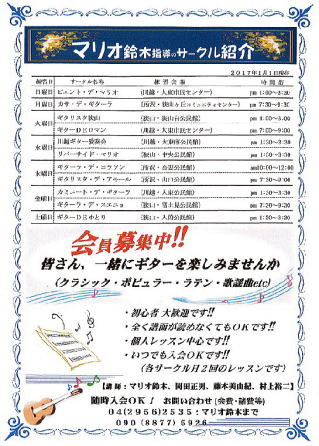 マリオ鈴木指導のサークル紹介
2017年1月1日現在
練習日 サークル名称 練習会場 時間帯
日曜日 ビエント・デ・マリオ (川越・大東市民センター) pm 1:00~3:30
月曜日 カサ・デ・ギターラ pm 7:30~9:30
火曜日 ギタリスタ狭山 (狭山・狭山台公民館)
ギターDEロマン (川越・大東市民センター) pm 7:00~9:00
水曜日 川越ギター愛好会 pm 1:30~3:30
リバーサイド・マリオ (狭山・中央公民館) pm 1:30~3:00
木曜日 ギターラ・デ・ニコラン am10:00~12:00
ギタリスタ・デ・アモール (所沢・山口公民館) pm 7:30~
金曜日 カミニート・デ・ギターラ (川越・大東公民館) pm 1:30~3:30
ギターラ・デ・スエニョ (狭山・富士見公民館) pm 7:30~9:30
土曜日 ギターDEゆとり (狭山・入曽公民館) pm 1:30~3:30
会員募集中!!
皆さん、一緒にギターを楽しみませんか
(クラシック・ポピュラー・ラテン・歌謡曲etc)
・初心者 大歓迎です!!
・全く譜面が読めなくてもOKです!!
・個人レッスン中心です!!
・いつでも入会OKです!!
(各サークル月2回のレッスンです)
【講師:マリオ鈴木、岡田正男、藤本美由紀、村上裕二】
随時入会OK! お問い合わせ(会費・諸費等)
04(2956)2535:マリオ鈴木まで
090(8877)5926